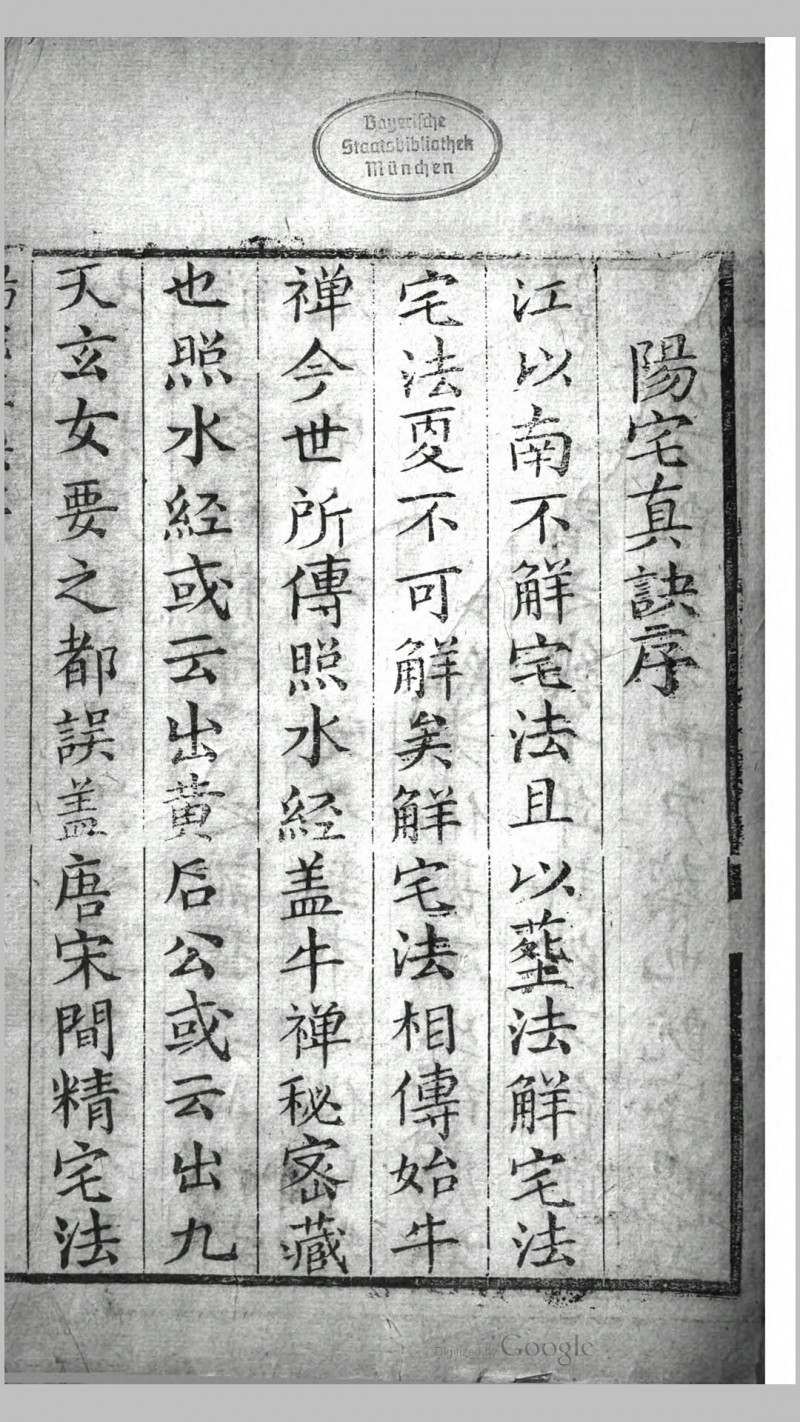 Bayerische
Staatsbibliothek
München
陽宅真訣序
江以南不觧宅法且以塟法觧宅法
宅法叓不可觧矣觧宅法相傳始牛
禅今世所傳照水経盖牛禅秘宻藏
也照水経或云出黄后公或云出九
天玄女要之都誤盖唐宋間精宅法
Digitized by Google